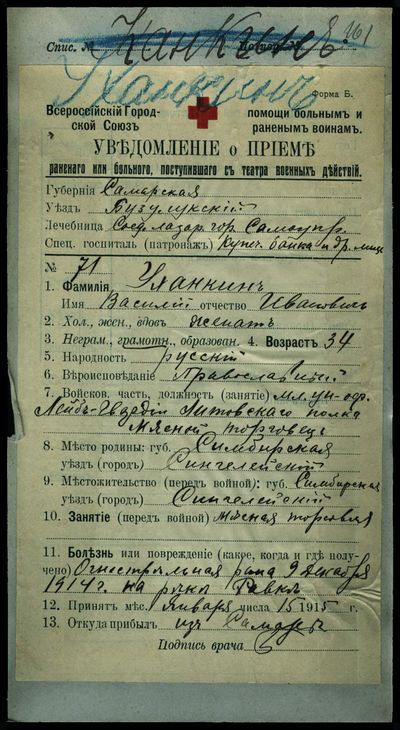 Спис. №
Ханкинъ
Форма Б.
Всероссійскій Город-
ской Союзъ
помощи больнымъ и
раненымъ воинамъ.
УВѢДОМЛЕНІЕ о ПРІЕМѢ
раненаго или больного, поступившаго съ театра военныхъ дѣйствій.
Губернія Самарская
Уѣздъ Бузулукскій
Лечебница Соед. лазар. гор. Самоупр.
Спец. госпиталь (патронажъ) Купеч. банка и др. лицъ
№ 71
1. Фамилія Уханкинъ
Имя Василій отчество Ивановичъ
2. Хол., жен., вдовъ женатъ
3. Неграм., грамотн., образован. 4. Возрастъ 34
5. Народность русскій
6. Вѣроисповѣданіе Православный
7. Войсков. часть, должность (занятіе) мл. ун-оф.
Лейбъ-Гвардіи Литовскаго полка
Мясной торговецъ
8. Мѣсто родины: губ. Симбирская
уѣздъ (городъ) Сингелейскій
9. Мѣстожительство (передъ войной): губ. Симбирская
уѣздъ (городъ) Сингелейскій
10. Занятіе (передъ войной) мясная торговля
11. Болѣзнь или поврежденіе (какое, когда и гдѣ полу-
чено) Огнестрѣльная рана 9 декабря
1914 г. на рѣкѣ Равкѣ
12. Принятъ мѣс. Января числа 15 1915 г.
13. Откуда прибылъ изъ Самары
Подпись врача